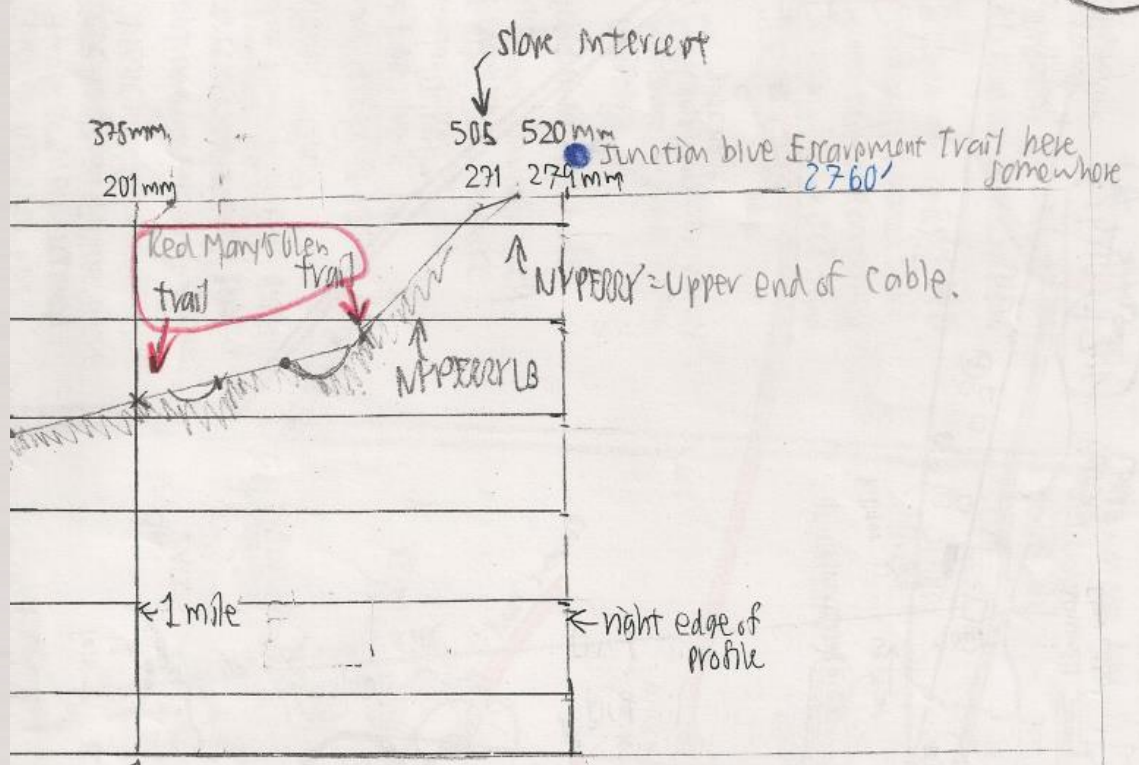 slope intercept
375mm
505 520mm
Junction blue Escarpment Trail here
somewhere
201mm
271 279mm
2760'
Red Mary's Glen
trail
trail
NYPERRY = Upper end of Cable.
NYPERRYLB
← 1 mile
← right edge of
profile